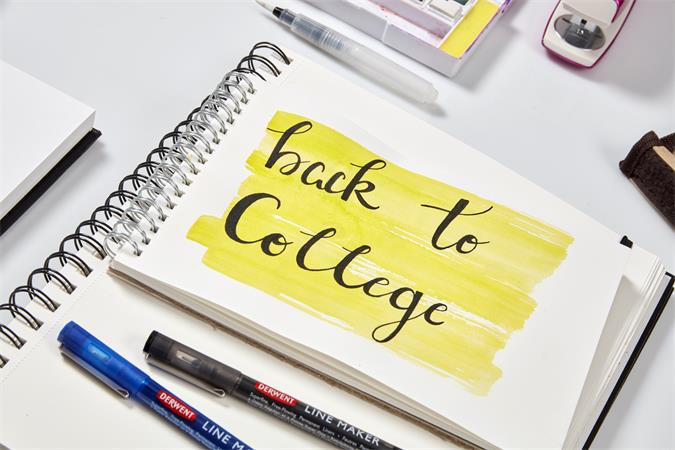 back to
College
DERWENT LINE
DERWENT LINE MAKER